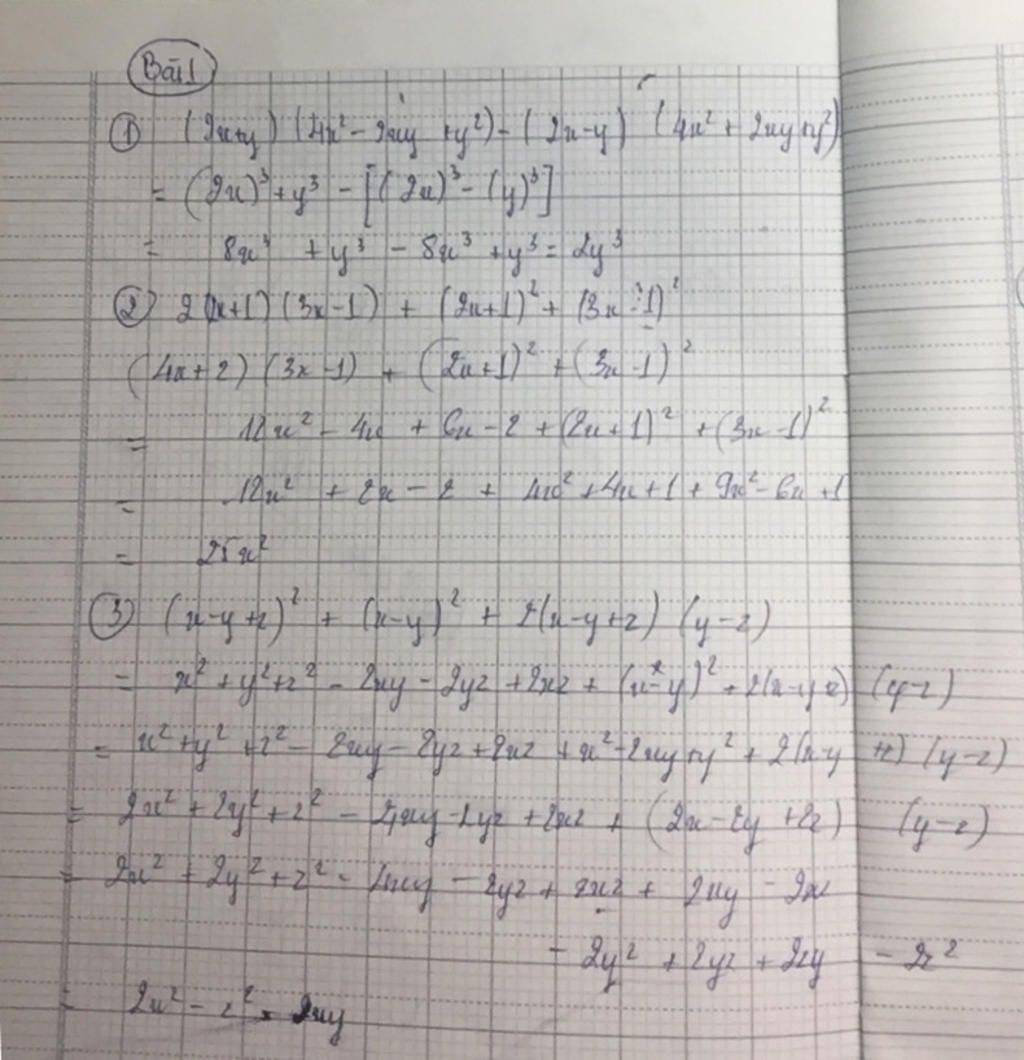 Bài 1
① (2x+y) (4x² - 2xy + y²) - (2x-y) (4x² + 2xy+y²)
= (2x)³ + y³ - [(2x)³ - (y)³]
= 8x³ + y³ - 8x³ + y³ = 2y³
② 2(2x+1) (3x-1) + (2x+1)² + (3x-1)²
(4x+2) (3x-1) + (2x+1)² + (3x-1)²
= 12x² - 4x + 6x - 2 + (2x+1)² + (3x-1)²
= 12x² + 2x - 2 + 4x² + 4x + 1 + 9x² - 6x + 1
= 25x²
③ (x-y+z)² + (x-y)² + 2(x-y+z) (y-z)
= x² + y² + z² - 2xy - 2yz + 2xz + (x-y)² + 2(x-y+z) (y-z)
= x² + y² + z² - 2xy - 2yz + 2xz + x² - 2xy + y² + 2(x-y+z) (y-z)
= 2x² + 2y² + z² - 4xy - 2yz + 2xz + (2x - 2y + 2z) (y-z)
= 2x² + 2y² + z² - 4xy - 2yz + 2xz + 2xy - 2xz
- 2y² + 2yz + 2zy - 2z²
= 2x² - z² - 2xy